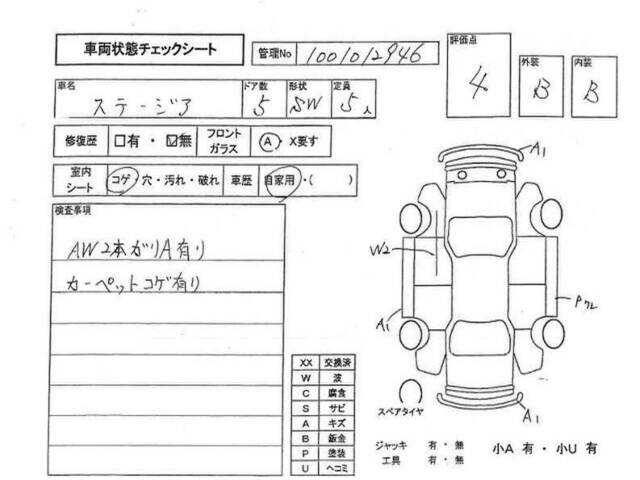 車両状態チェックシート 管理No 1001012946
評価点 4
外装 B
内装 B
車名 ステージア ドア数 5 形状 SW 定員 5人
修復歴 □有・☑無 フロントガラス A・X要す
室内シート コゲ・穴・汚れ・破れ 車歴 自家用・( )
検査事項
AW2本ガリA有り
カーペットコゲ有り
A1
W2
A1
A1
XX 交換済
W 波
C 腐食
S サビ
A キズ
B 鈑金
P 塗装
U ヘコミ
スペアタイヤ
ジャッキ 有・無
工具 有・無
小A 有・小U 有